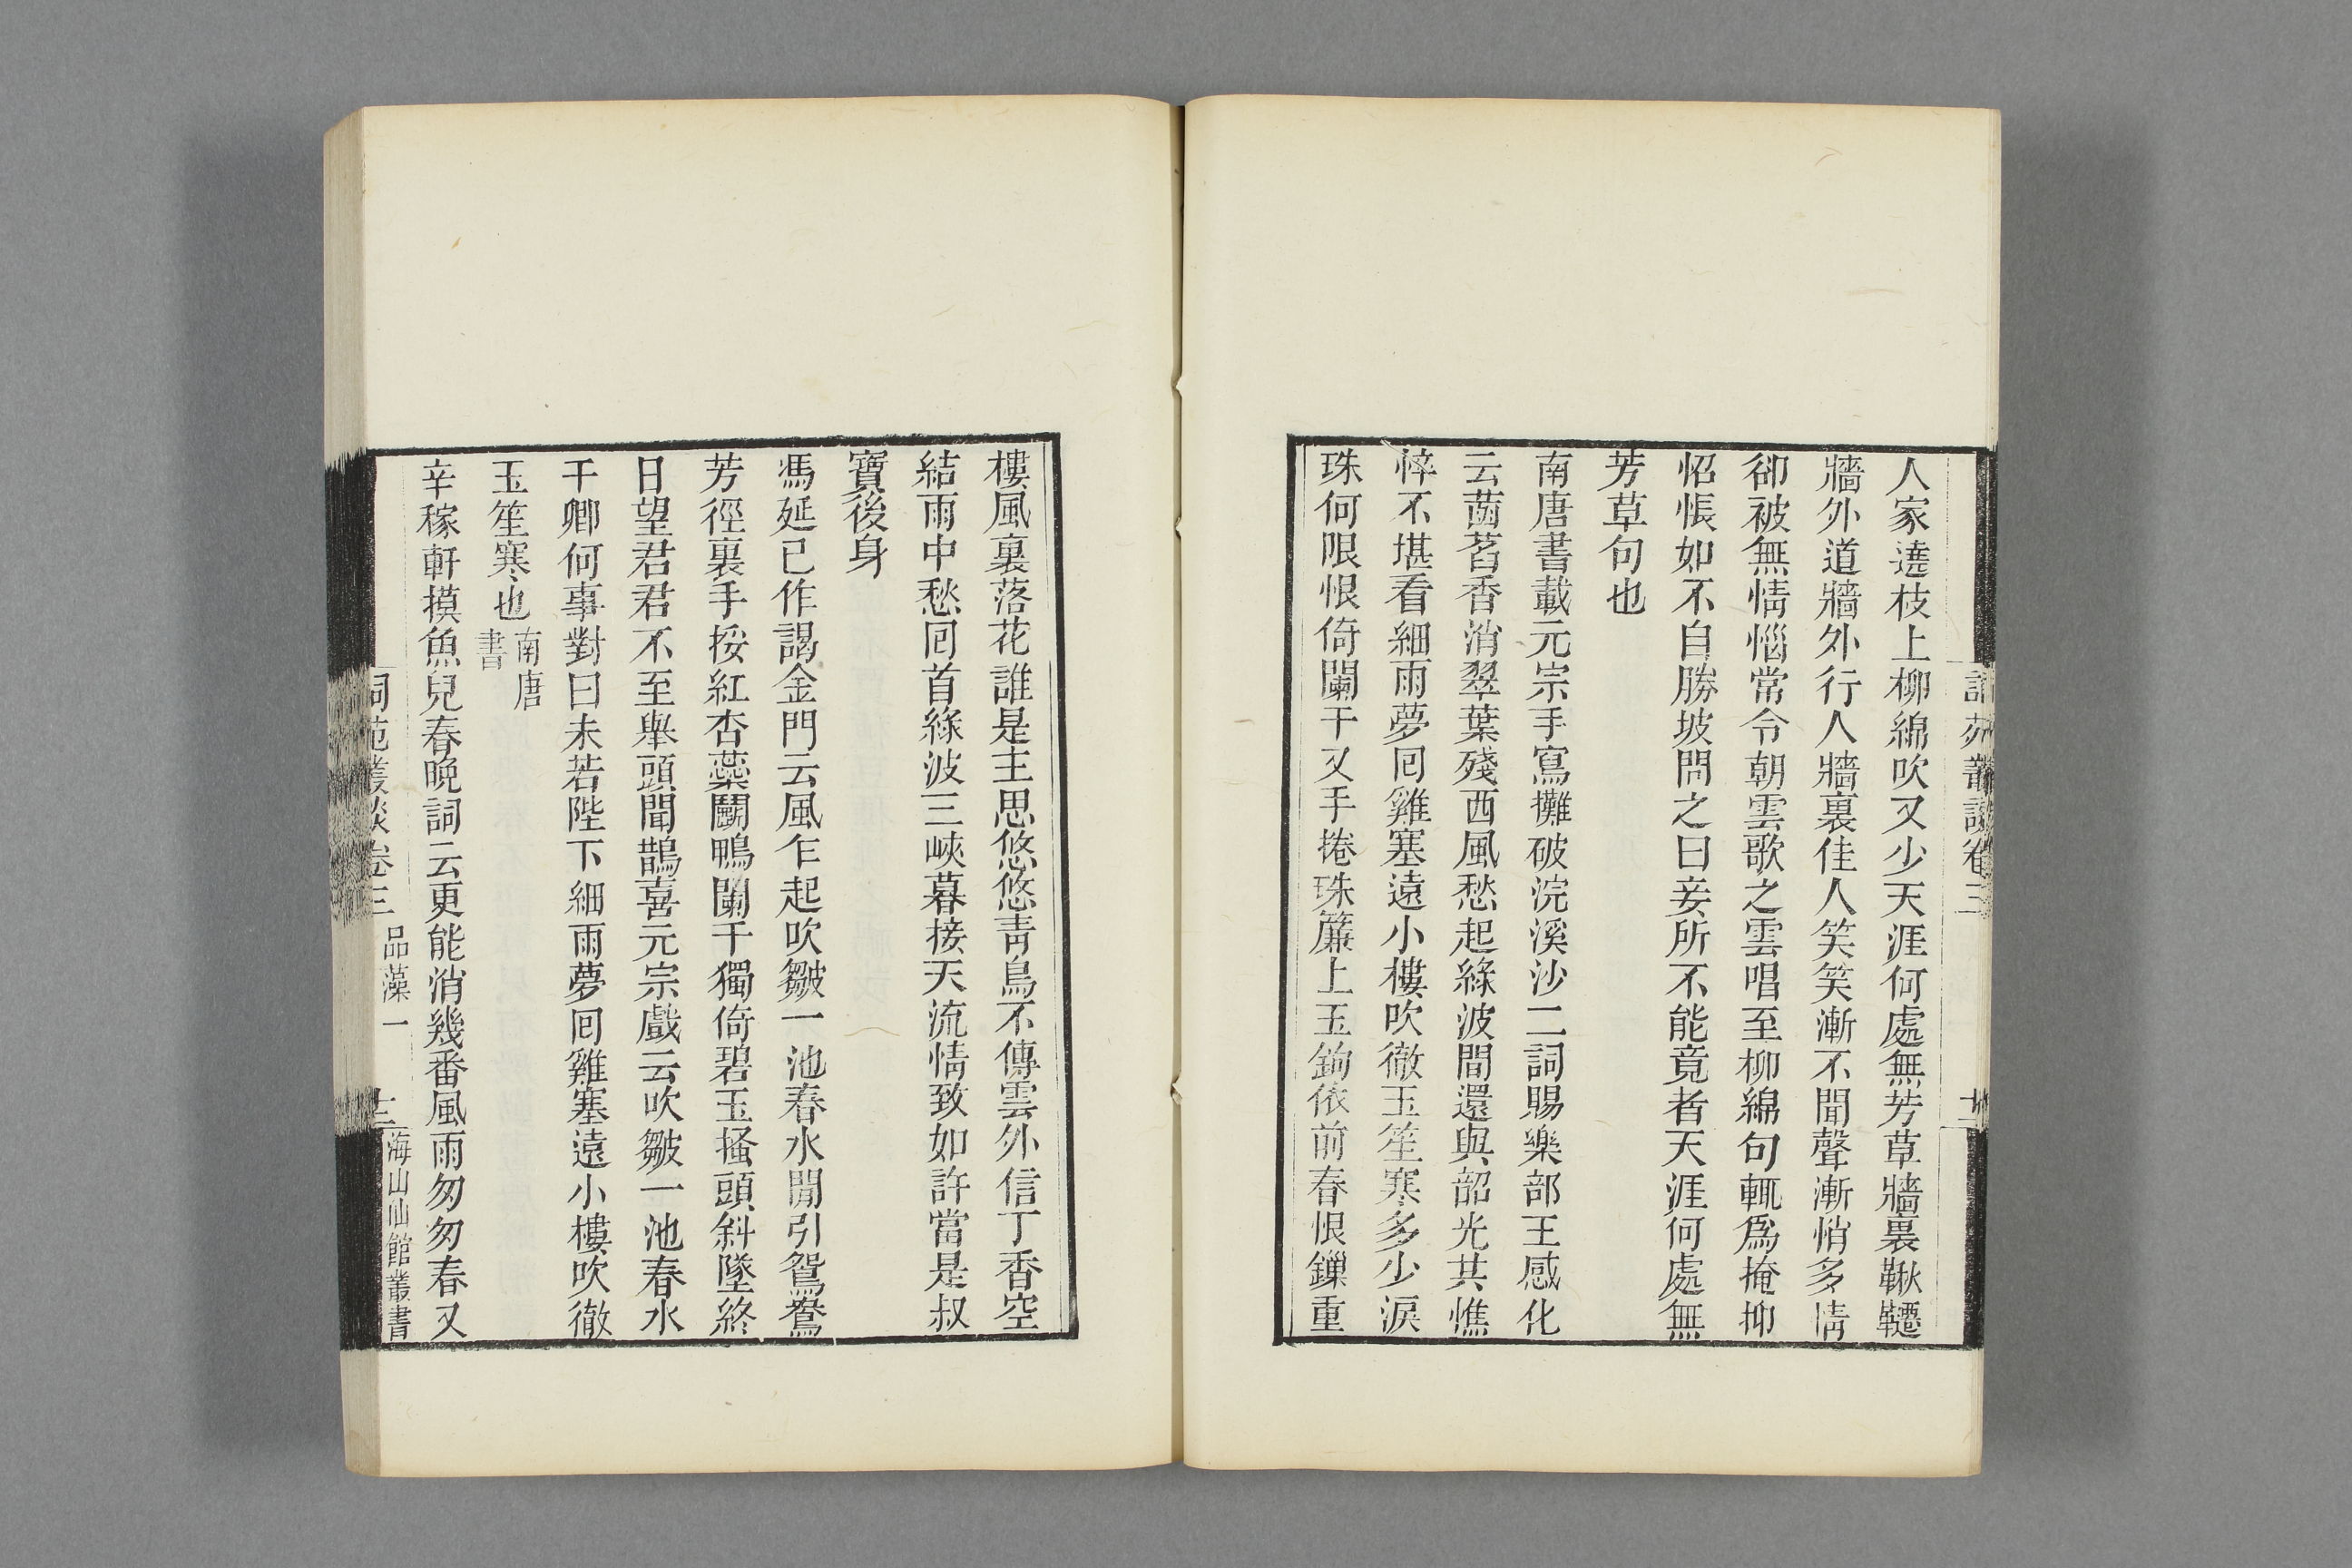 詞苑叢談卷三
人家遶枝上柳綿吹又少天涯何處無芳草牆裏鞦韆
牆外道牆外行人牆裏佳人笑笑漸不聞聲漸悄多情
卻被無情惱常令朝雲歌之雲唱至柳綿句輒爲掩抑
怊悵如不自勝坡問之曰妾所不能竟者天涯何處無
芳草句也
南唐書載元宗手寫攤破浣溪沙二詞賜樂部王感化
云菡萏香消翠葉殘西風愁起綠波間還與韶光共憔
悴不堪看細雨夢囘雞塞遠小樓吹徹玉笙寒多少淚
珠何限恨倚闌干又手捲珠簾上玉鉤依前春恨鏁重
樓風裏落花誰是主思悠悠靑鳥不傳雲外信丁香空
結雨中愁囘首綠波三峽暮接天流情致如許當是叔
寶後身
馮延已作謁金門云風乍起吹皺一池春水閒引鴛鴦
芳徑裏手挼紅杏蘂鬭鴨闌干獨倚碧玉搔頭斜墜終
日望君君不至舉頭聞鵲喜元宗戲云吹皺一池春水
干卿何事對曰未若陛下細雨夢囘雞塞遠小樓吹徹
玉笙寒也南唐書
辛稼軒摸魚兒春晚詞云更能消幾番風雨匆匆春又
詞苑叢談卷三 品藻一 海山仙館叢書